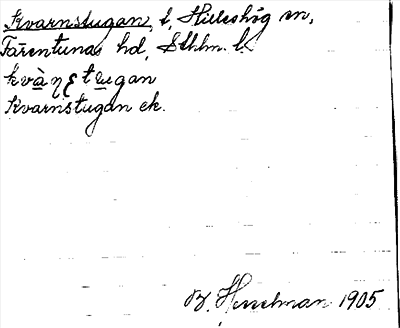 Kvarnstugan, t, Hilleshög sn,
Färentunas hd, Sthlm. l.
kvàṇʂtugan
Kvarnstugan ek.
B. Hesselman 1905